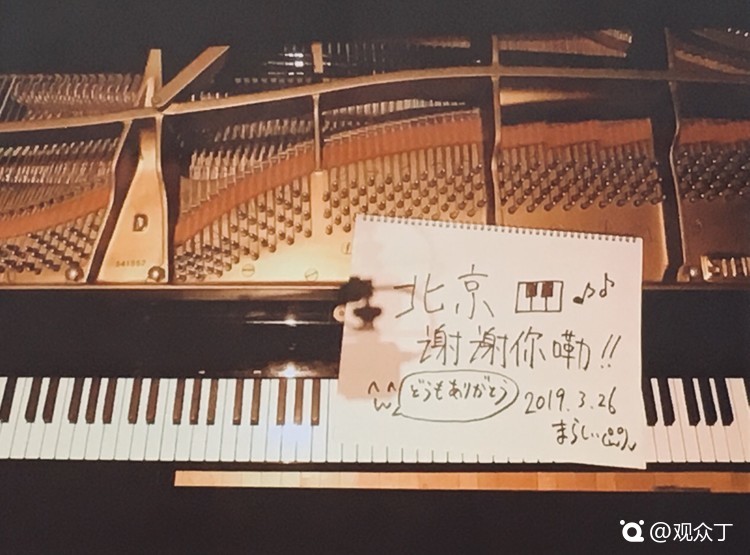 D
北京
谢谢你嘞!!
どうもありがとう
2019.3.26
まらしぃ
@观众丁